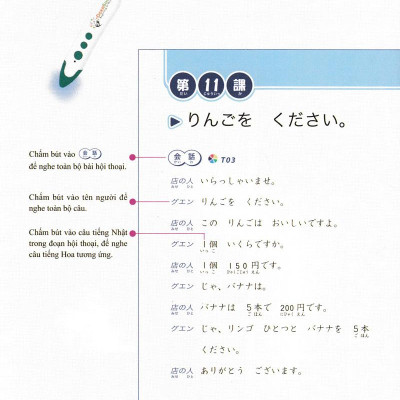 第11課
りんごを ください。
Chấm bút vào 会話
để nghe toàn bộ bài hội thoại.
会話 T03
店の人 いらっしゃいませ。
Chấm bút vào tên người để
nghe toàn bộ câu.
グエン りんごを ください。
店の人 この りんごは おいしいですよ。
Chấm bút vào câu tiếng Nhật
trong đoạn hội thoại, để nghe
câu tiếng Hoa tương ứng.
グエン 1個 いくらですか。
店の人 1個 150円です。
グエン じゃ、バナナは。
店の人 バナナは 5本で 200円です。
グエン じゃ、リンゴ ひとつと バナナを 5本
ください。
店の人 ありがとう ございます。